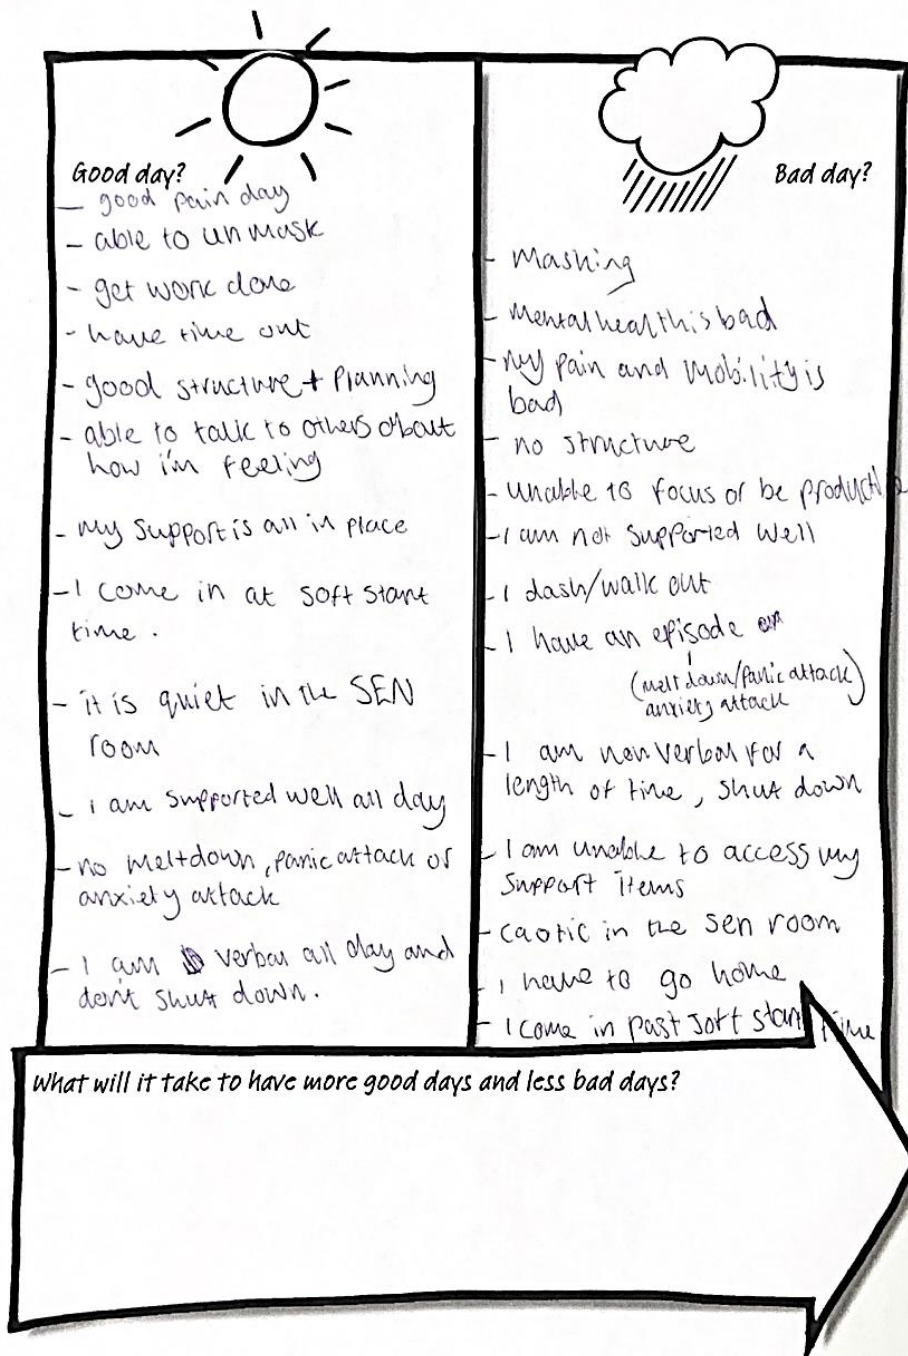 Good day?
- good pain day
- able to unmask
- get work done
- have time out
- good structure + planning
- able to talk to others about
how i'm feeling
- my support is all in place
- I come in at soft start
time.
- it is quiet in the SEN
room
- i am supported well all day
- no meltdown, panic attack or
anxiety attack
- I am verbal all day and
don't shut down.
Bad day?
- Masking
- Mental health is bad
- my pain and mobility is
bad
- no structure
- unable to focus or be productive
- I am not supported well
- I dash/walk out
- I have an episode
(meltdown/panic attack)
anxiety attack
- I am non verbal for a
length of time, shut down
- I am unable to access my
support items
- caotic in the sen room
- i have to go home
- I come in past soft start time
What will it take to have more good days and less bad days?